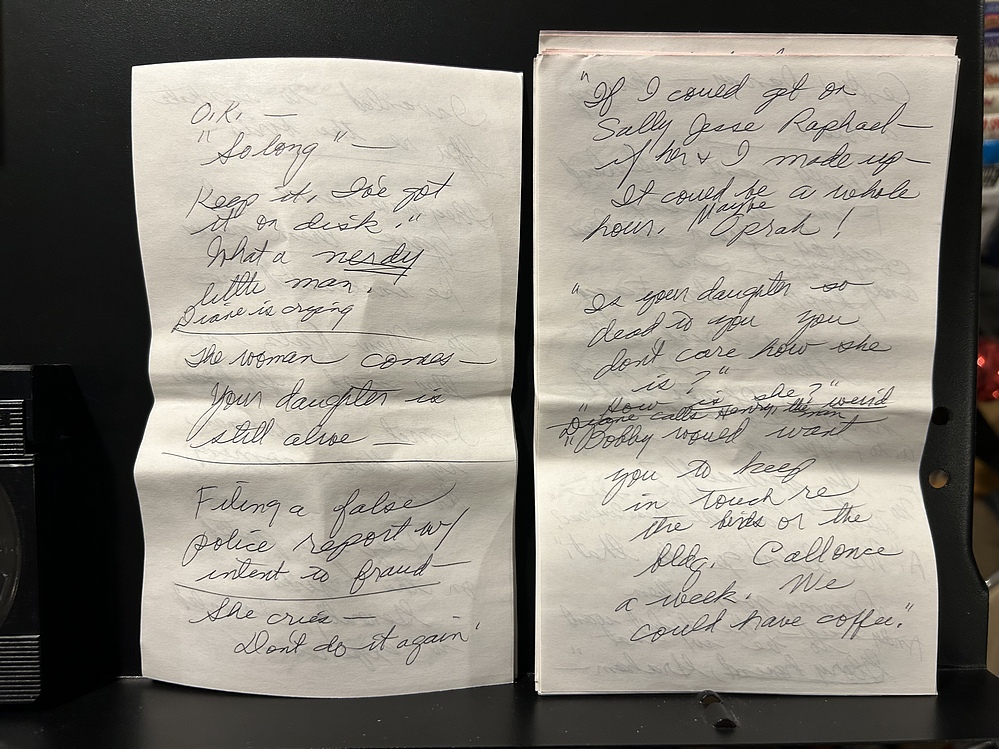 O.K. —
"So long" —
Keep it, I've got
it on disk."
What a nerdy
little man.
Diane is crying
The woman comes —
Your daughter is
still alive —
Filing a false
police report w/
intent to fraud —
She cries —
Dont do it again"
"If I could get on
Sally Jesse Raphael —
if her & I made up —
It could be a whole
hour. Maybe Oprah!
"Is your daughter so
dead to you you
dont care how she
is?"
"How is she?" weird
Diane calls Henry the man
"Bobby would want
you to keep
in touch re
the birds or the
bldg. Call once
a week. We
could have coffee."